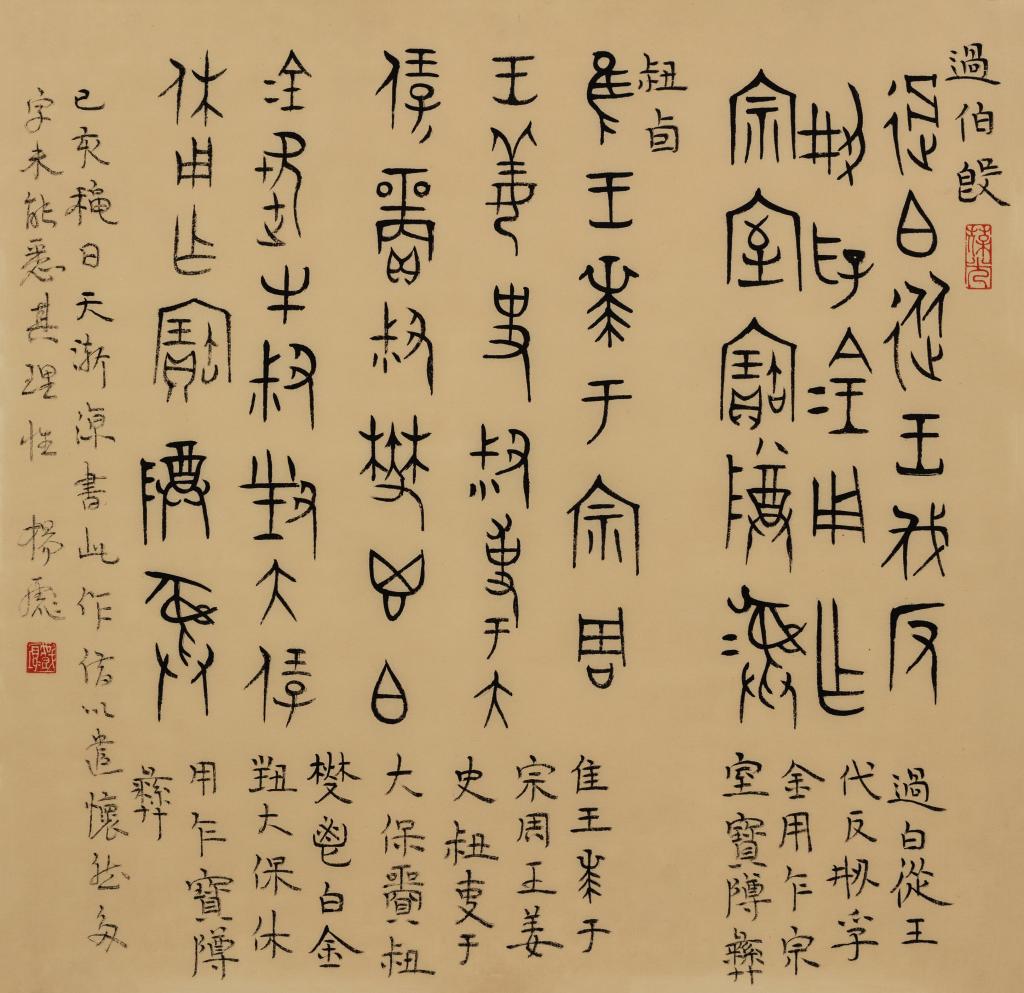 過伯𣪘
過白從王伐反
荊孚金用乍
宗室寶𬯚彝
過白從王
伐反荊孚
金用乍宗
室寶𬯚彝
叔卣
隹王𠦪于宗周
王姜史叔吏于大
保賞叔鬱鬯白
金牛叔對大保
休用乍寶𬯚彝
隹王𠦪于
宗周王姜
史叔吏于
大保賞叔
鬱鬯白金
對大保休
用乍寶𬯚
彝
己亥穐日天漸涼書此作仿以遣懷然多
字未能悉其理性 楊